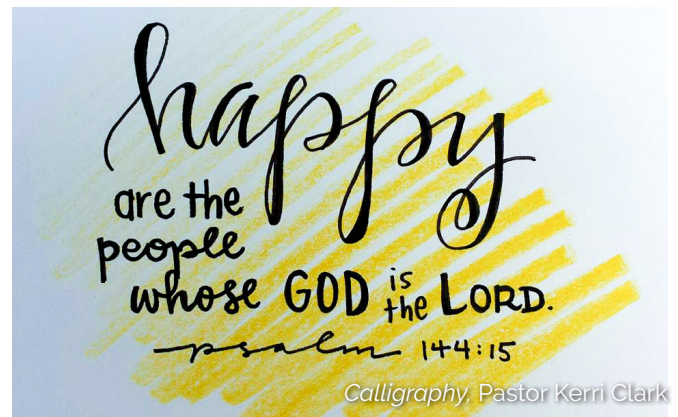 happy
are the
people
whose GOD is the LORD.
psalm 144:15
Calligraphy, Pastor Kerri Clark